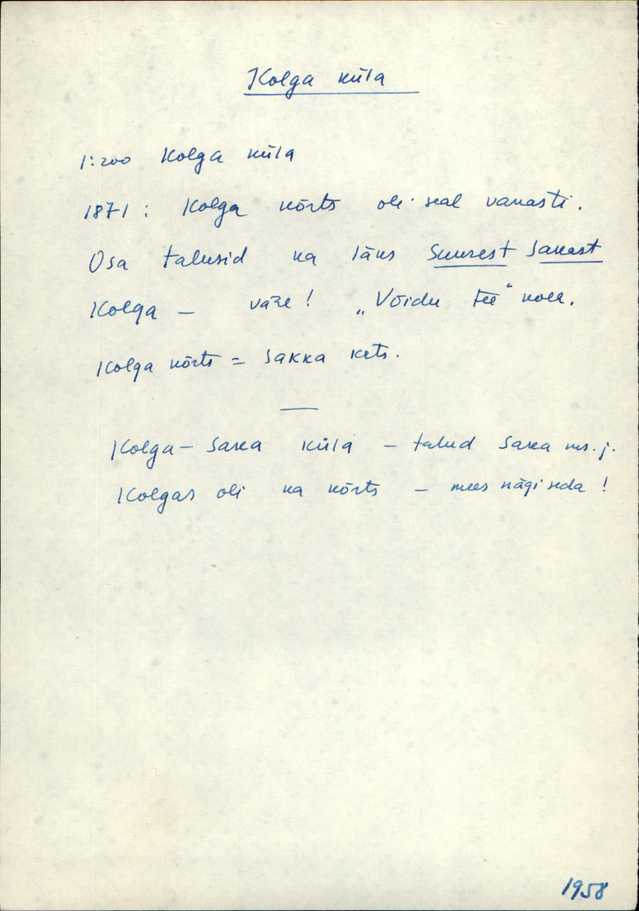 Kolga küla
1:200 Kolga küla
1871: Kolga kõrts oli seal vanasti.
Osa talusid ka läks Suurest Sakast
Kolga — väze! „Võidu tee" kolh.
Kolga kõrts = Sakka krts.
Kolga – Saka küla – talud Saka ms. j.
Kolgas oli ka kõrts – mees nägi seda!
1958